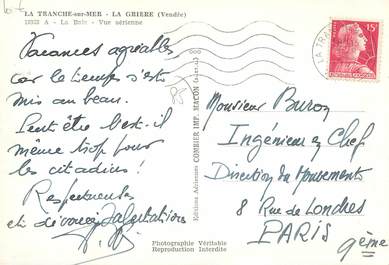 LA TRANCHE-sur-MER - LA GRIERE (Vendée)
A - La Baie - Vue aérienne
Vacances agréables
car le temps s'est
mis au beau.
Peut être est-il
même trop pour
les citadins !
Respectueuses
et dévouées Salutations
Photographie Véritable
Reproduction Interdite
Editions Aériennes COMBIER IMP. MACON
LA TRANC
15F
Monsieur Buron
Ingénieur en Chef
Direction du Mouvement
8 Rue de Londres
PARIS
9ème